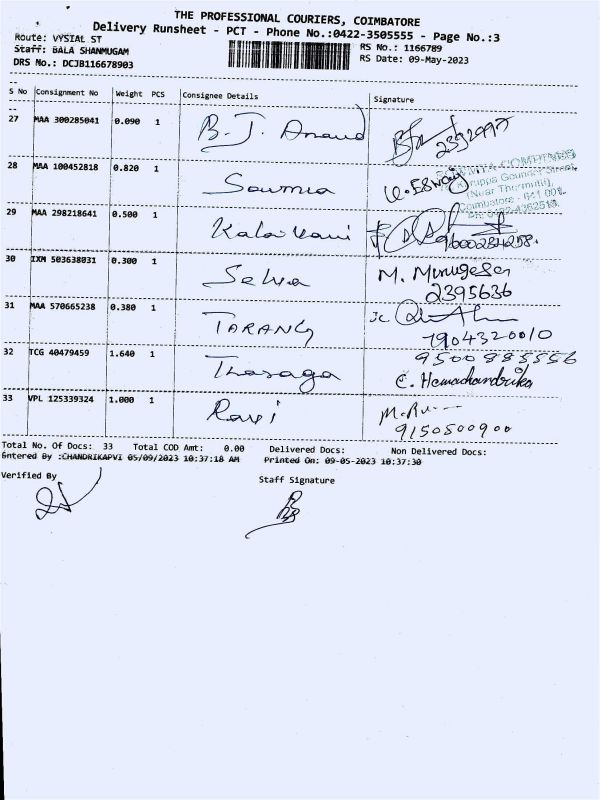 THE PROFESSIONAL COURIERS, COIMBATORE
Delivery Runsheet - PCT - Phone No.:0422-3505555 - Page No.:3
Route: VYSIAL ST
Staff: BALA SHANMUGAM
DRS No.: DCJB116678903
RS No.: 1166789
RS Date: 09-May-2023
S No Consignment No Weight PCS Consignee Details Signature
27 MAA 300285041 0.090 1 B.J. Anand 2392997
28 MAA 100452818 0.820 1 Sowmia
SOWMYA COMPUTERS
(Near Thirumurthi),
Coimbatore - 641 001.
29 MAA 298218641 0.500 1 Kalaivani 9600284258.
30 IXM 503638031 0.300 1 Selva M. Murugesan
2395636
31 MAA 570665238 0.380 1 TARANG
7904320010
32 TCG 40479459 1.640 1 Thasaga 9500885556
C. Hemachandrika
33 VPL 125339324 1.000 1 Ravi
9150500900
Total No. Of Docs: 33 Total COD Amt: 0.00 Delivered Docs: Non Delivered Docs:
Entered By :CHANDRIKAPVI 05/09/2023 10:37:18 AM Printed On: 09-05-2023 10:37:30
Verified By
Staff Signature